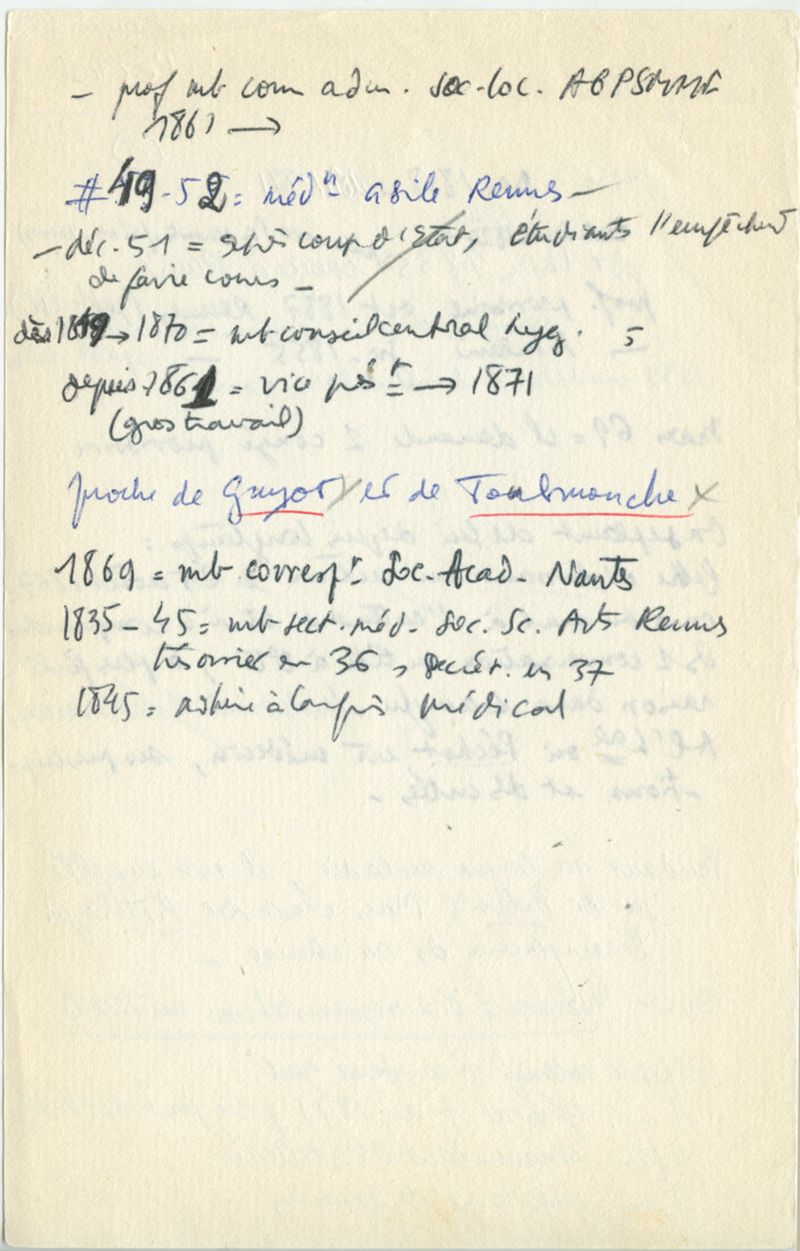 – prof mb com adm. soc. loc. ABPSMMF
1861 →
# 49-52 = méd^n asile Rennes –
– déc. 51 = après coup d'Etat, étudiants l'empêchent
de faire cours –
dès 1849 → 1870 = mb conseil central hyg. ;
depuis 1861 = vice prés^t → 1871
(gros travail)
proche de Guyot x et de Toulmouche x
1869 = mb corresp^t. Soc. Acad. Nantes
1835-45 = mb sect. méd. Soc. Sc. Arts Rennes
trésorier en 36, secrét. en 37
1845 = assiste à Congrès médical